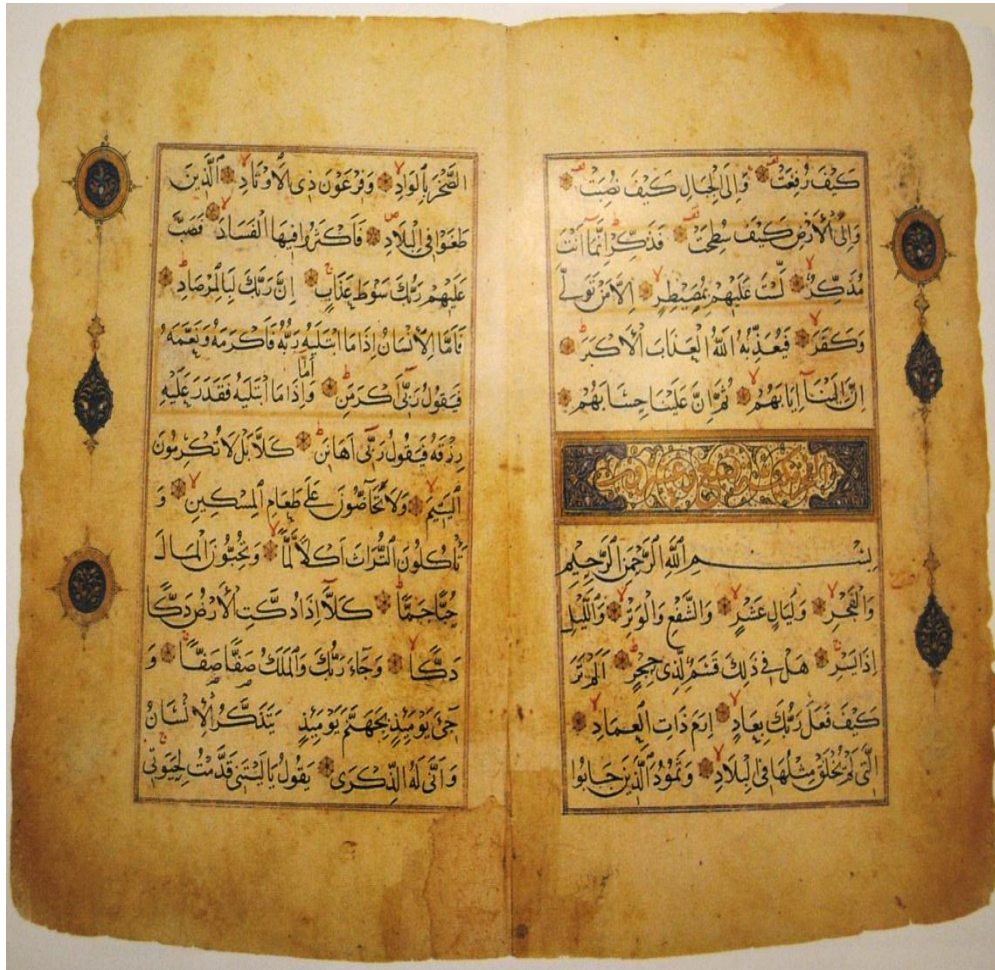 كَيْفَ رُفِعَتْ وَإِلَى الْجِبَالِ كَيْفَ نُصِبَتْ
وَإِلَى الْأَرْضِ كَيْفَ سُطِحَتْ فَذَكِّرْ إِنَّمَا أَنْتَ
مُذَكِّرٌ لَسْتَ عَلَيْهِمْ بِمُصَيْطِرٍ إِلَّا مَنْ تَوَلَّى
وَكَفَرَ فَيُعَذِّبُهُ اللَّهُ الْعَذَابَ الْأَكْبَرَ
إِنَّ إِلَيْنَا إِيَابَهُمْ ثُمَّ إِنَّ عَلَيْنَا حِسَابَهُمْ
بِسْمِ اللَّهِ الرَّحْمَنِ الرَّحِيمِ
وَالْفَجْرِ وَلَيَالٍ عَشْرٍ وَالشَّفْعِ وَالْوَتْرِ وَاللَّيْلِ
إِذَا يَسْرِ هَلْ فِي ذَلِكَ قَسَمٌ لِذِي حِجْرٍ أَلَمْ تَرَ
كَيْفَ فَعَلَ رَبُّكَ بِعَادٍ إِرَمَ ذَاتِ الْعِمَادِ
الَّتِي لَمْ يُخْلَقْ مِثْلُهَا فِي الْبِلَادِ وَثَمُودَ الَّذِينَ جَابُوا
الصَّخْرَ بِالْوَادِ وَفِرْعَوْنَ ذِي الْأَوْتَادِ الَّذِينَ
طَغَوْا فِي الْبِلَادِ فَأَكْثَرُوا فِيهَا الْفَسَادَ فَصَبَّ
عَلَيْهِمْ رَبُّكَ سَوْطَ عَذَابٍ إِنَّ رَبَّكَ لَبِالْمِرْصَادِ
فَأَمَّا الْإِنْسَانُ إِذَا مَا ابْتَلَيهُ رَبُّهُ فَأَكْرَمَهُ وَنَعَّمَهُ
فَيَقُولُ رَبِّي أَكْرَمَنِ وَأَمَّا إِذَا مَا ابْتَلَيهُ فَقَدَرَ عَلَيْهِ
رِزْقَهُ فَيَقُولُ رَبِّي أَهَانَنِ كَلَّا بَلْ لَا تُكْرِمُونَ
الْيَتِيمَ وَلَا تَحَاضُّونَ عَلَى طَعَامِ الْمِسْكِينِ وَ
تَأْكُلُونَ التُّرَاثَ أَكْلًا لَمًّا وَتُحِبُّونَ الْمَالَ
حُبًّا جَمًّا كَلَّا إِذَا دُكَّتِ الْأَرْضُ دَكًّا
دَكًّا وَجَاءَ رَبُّكَ وَالْمَلَكُ صَفًّا صَفًّا وَ
جِيءَ يَوْمَئِذٍ بِجَهَنَّمَ يَوْمَئِذٍ يَتَذَكَّرُ الْإِنْسَانُ
وَأَنَّى لَهُ الذِّكْرَى يَقُولُ يَا لَيْتَنِي قَدَّمْتُ لِحَيَوتِي